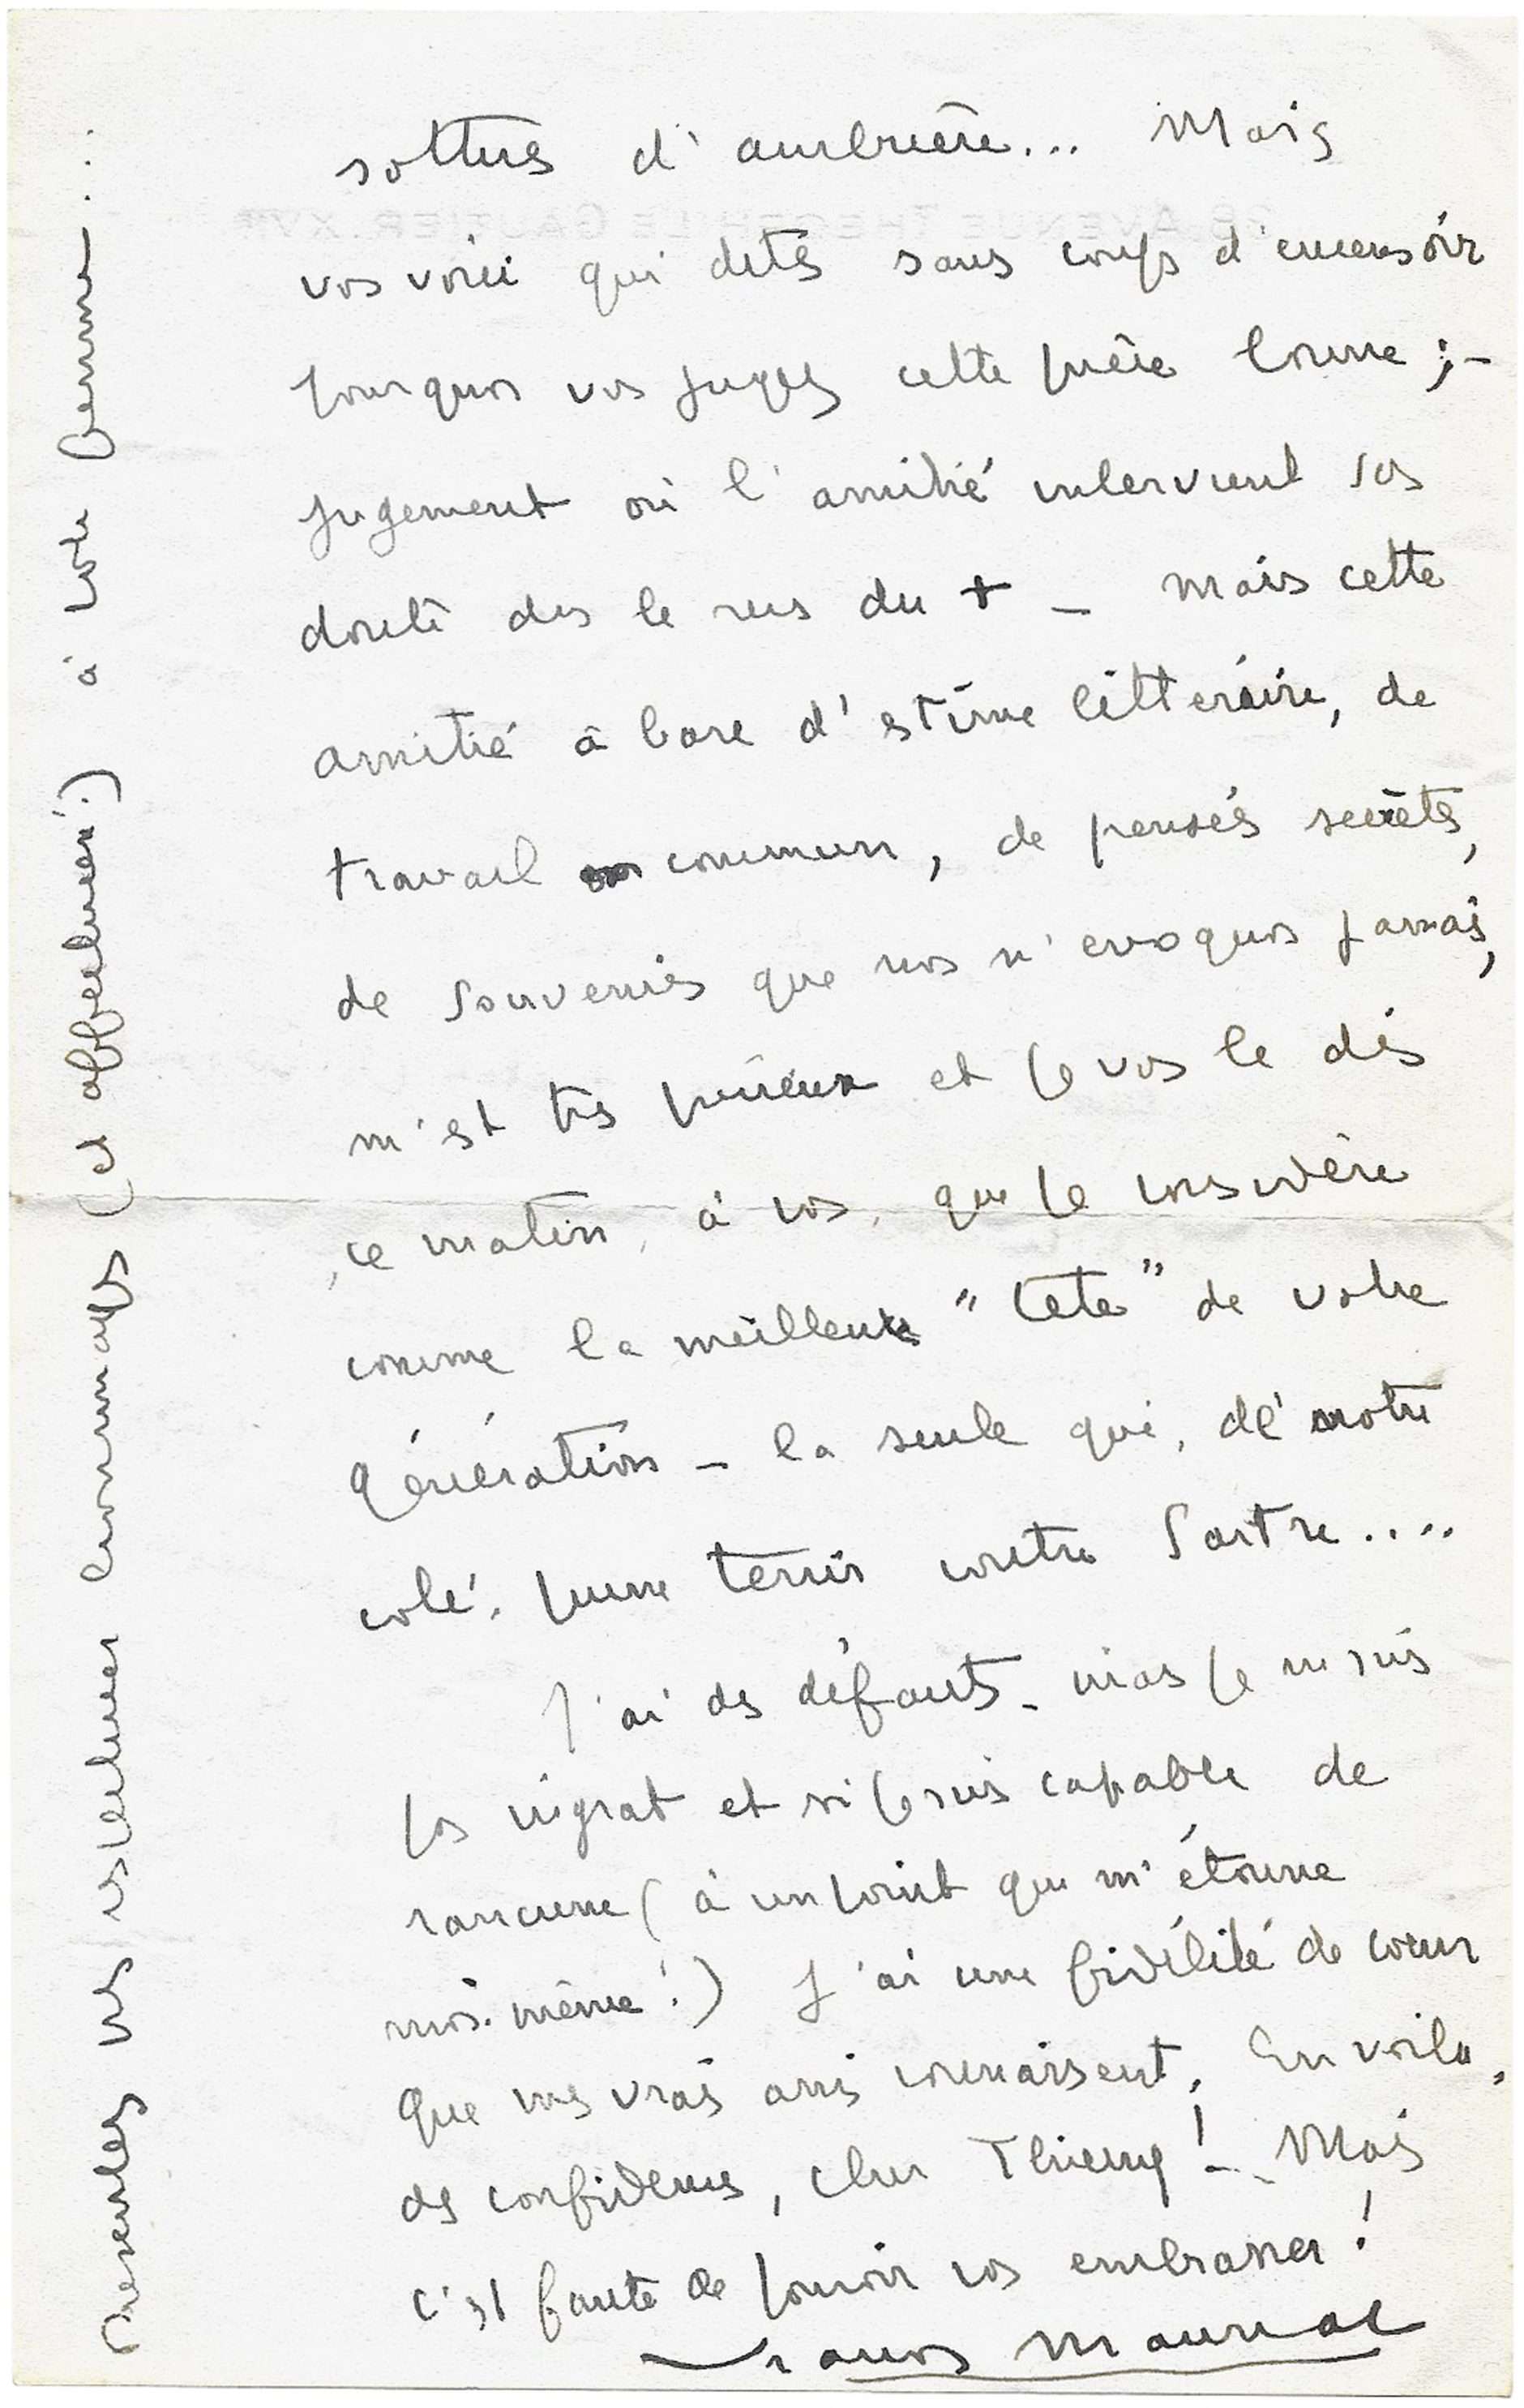 sottises d'Ambrière... Mais
vos voici qui dites sans coups d'encensoir
pourquoi vos jugez cette pièce bonne ; –
jugement où l'amitié intervient sas
doute ds le sens du + – mais cette
amitié à base d'estime littéraire, de
travail commun, de pensées secrètes,
de souvenirs que nos n'evoquos jamais,
m'est très précieuse et je vos le dis
ce matin, à vos, que je considère
comme la meilleure "tête" de votre
génération – la seule qui, de notre
coté, puisse tenir contre Sartre....
J'ai ds défauts – mais je ne suis
pas ingrat et si je suis capable de
rancune (à un point qui m'étonne
moi-même !) J'ai une fidélité de cœur
que mes vrais amis connaissent. En voilà,
ds confidences, cher Thierry ! – Mais
c'est faute de pouvoir vos embrasser !
François Mauriac
Presentez mes respectueux hommages (et affectueux !) à votre femme...
28, AVENUE THÉOPHILE GAUTIER. XVIe